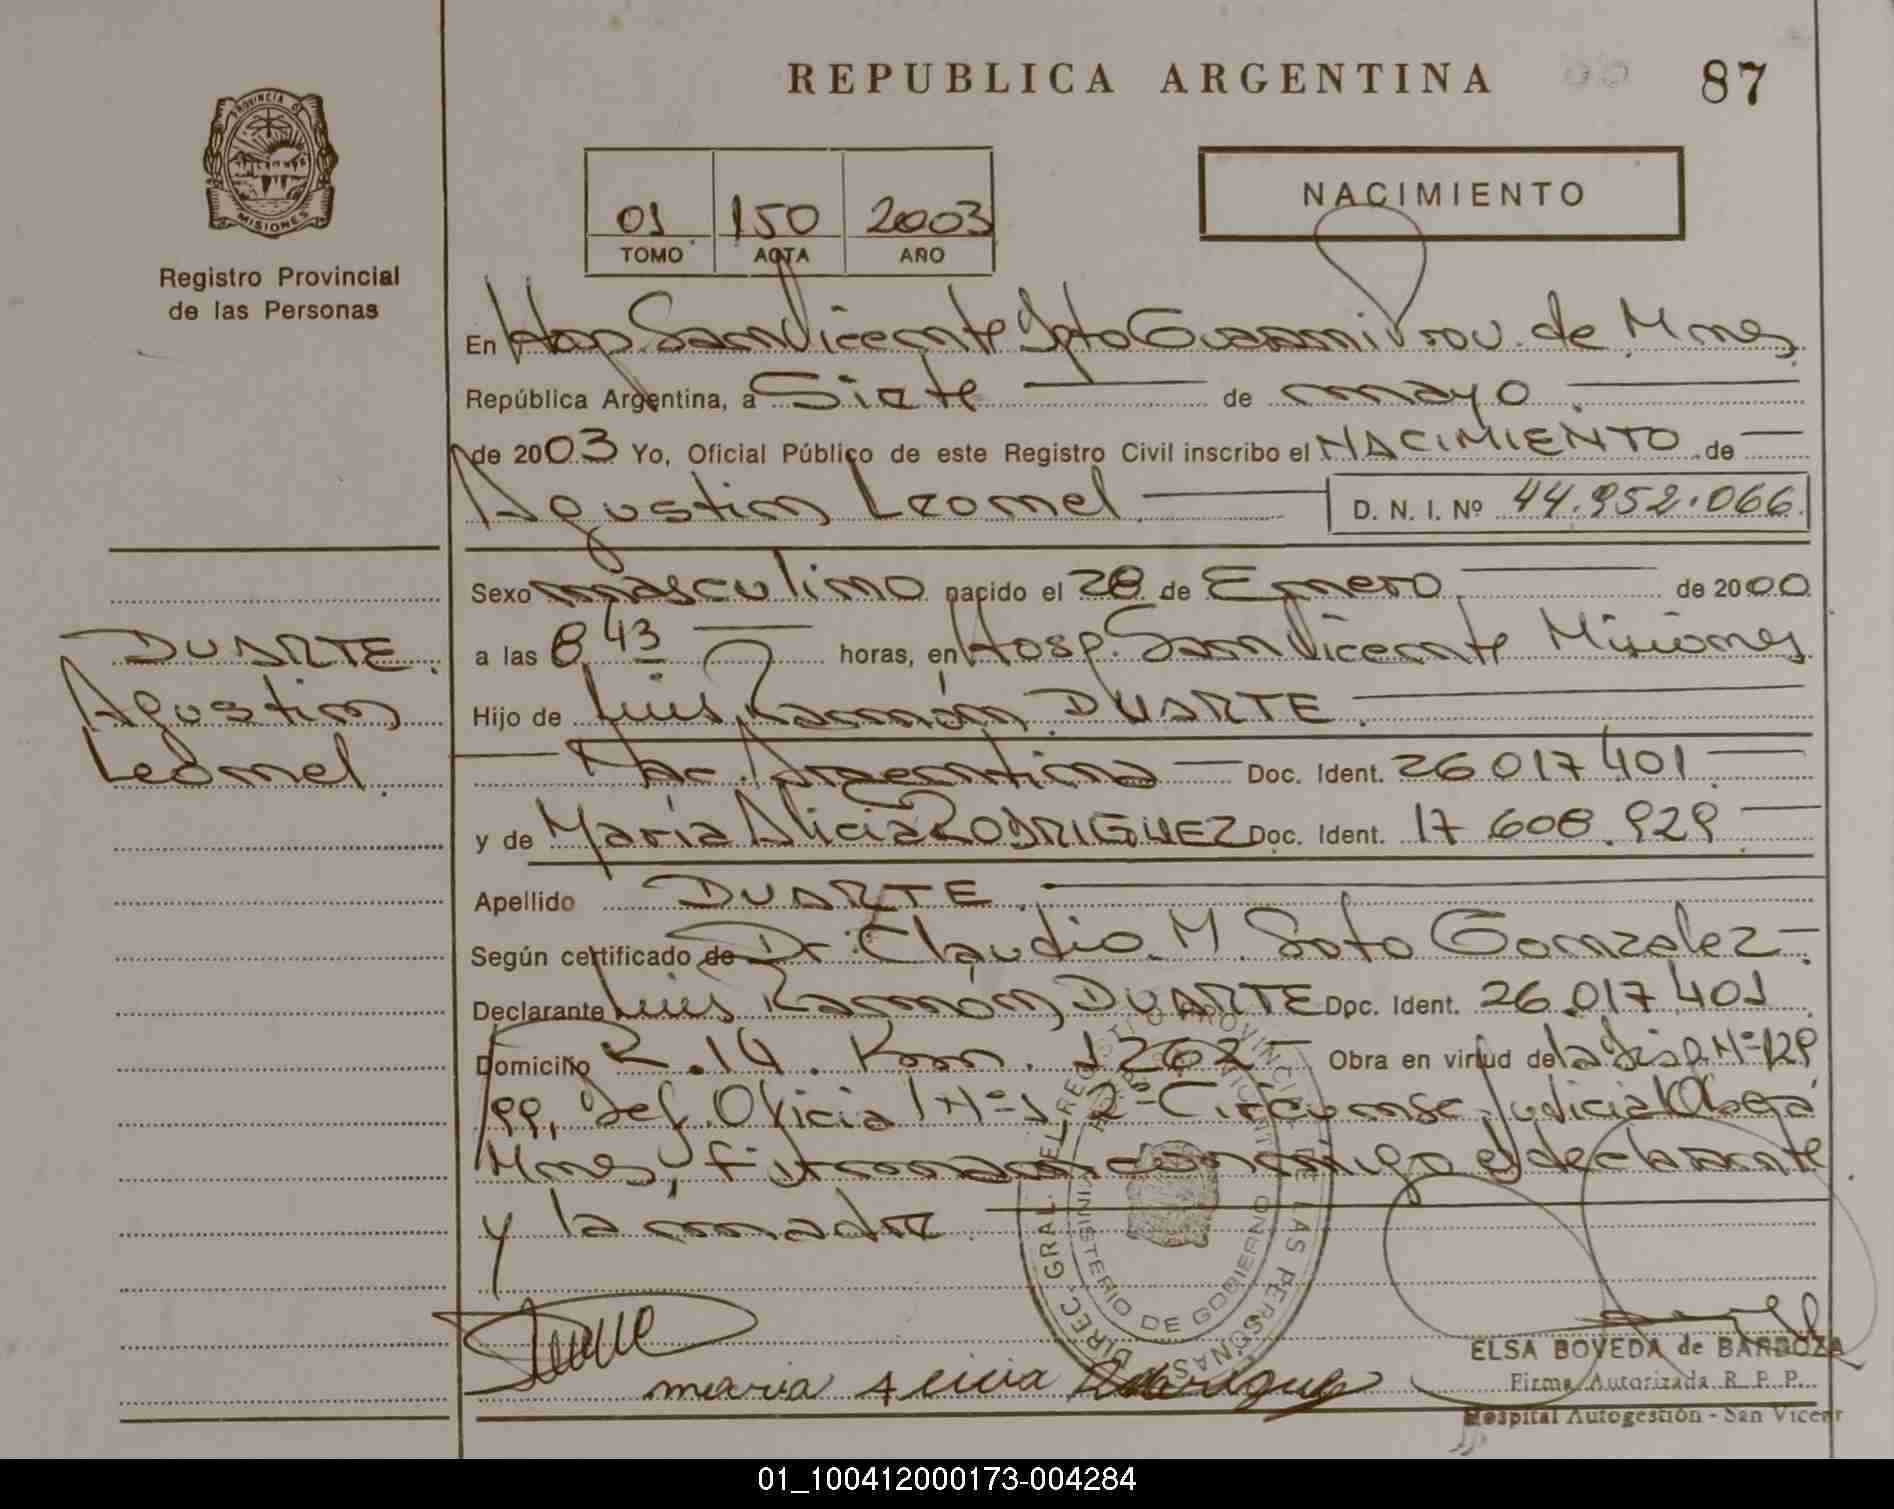 REPUBLICA ARGENTINA
87
PROVINCIA DE
MISIONES
Registro Provincial
de las Personas
01 150 2003
TOMO ACTA AÑO
NACIMIENTO
En Hosp. San Vicente Dpto Guarani Prov. de Mnes
República Argentina, a Siete de mayo
de 2003 Yo, Oficial Público de este Registro Civil inscribo el NACIMIENTO de
Agustin Leonel D. N. I. Nº 44.952.066
Sexo masculino nacido el 28 de Enero de 2000
a las 8,43 horas, en Hosp. San Vicente Misiones
Hijo de Luis Ramón DUARTE
Nac. Argentina Doc. Ident. 26 017 401
y de María Alicia RODRIGUEZ Doc. Ident. 17 608 929
Apellido DUARTE
Según certificado de Dr. Claudio. M. Soto Gonzalez
Declarante Luis Ramón DUARTE Doc. Ident. 26.017.401
Domicilio R. 14. Km. 1262 Obra en virtud de la Disp. Nº 129
/99, Def. Oficial Nº 1 2º Circunsc. Judicial Oberá
Mnes, firman conmigo el declarante
y la madre
DUARTE
Agustin
Leonel
DIREC. GRAL. DEL REGISTRO PROVINCIAL DE LAS PERSONAS
MINISTERIO DE GOBIERNO
maria Alicia Rodriguez
ELSA BOVEDA de BARBOZA
Firma Autorizada R. P. P.
Hospital Autogestión - San Vicente
01_100412000173-004284